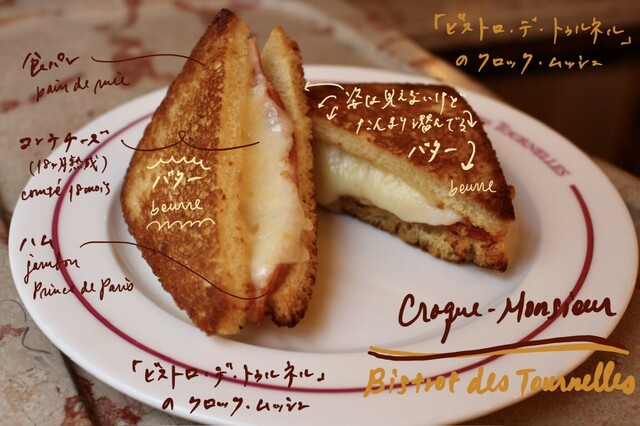 「ビストロ・デ・トゥルネル」
のクロック・ムッシュ
食パン
pain de mie
コンテチーズ
(18ヶ月熟成)
comté 18 mois
ハム
jambon
Prince de Paris
バター
beurre
姿は見えないけど
たんまり潜んでる
バター
beurre
TOURNELLES
Croque-Monsieur
Bistrot des Tournelles
「ビストロ・デ・トゥルネル」
のクロック・ムッシュ